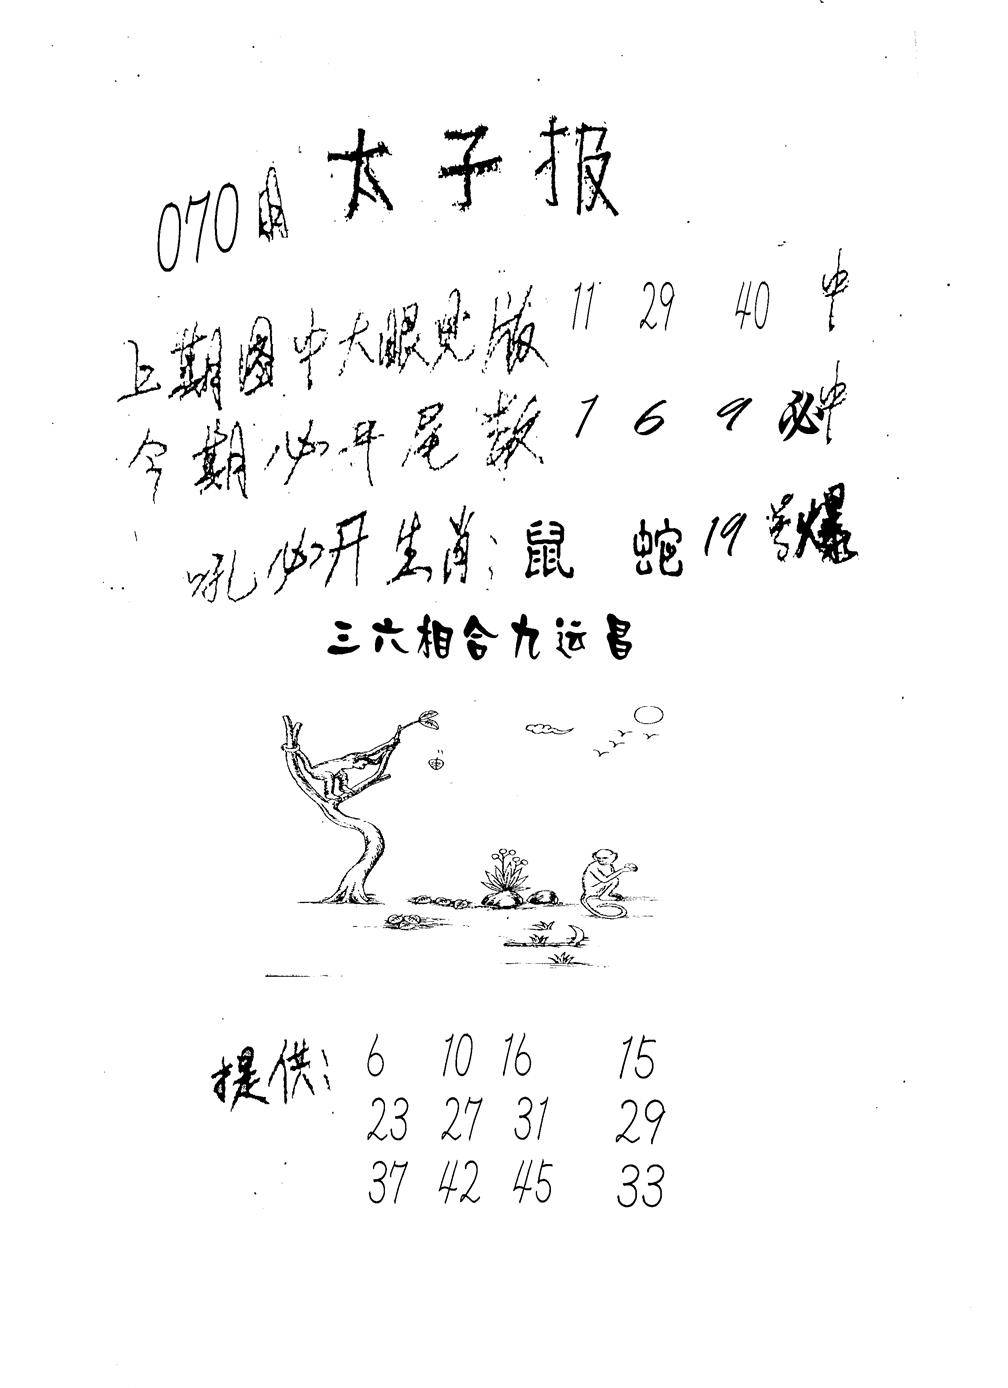 太子报
070期
上期图中大眼见版 11 29 40 中
今期必开尾数 1 6 9 必中
吼必开生肖: 鼠 蛇 19号爆
三六相合九运昌
提供: 6 10 16 15
23 27 31 29
37 42 45 33